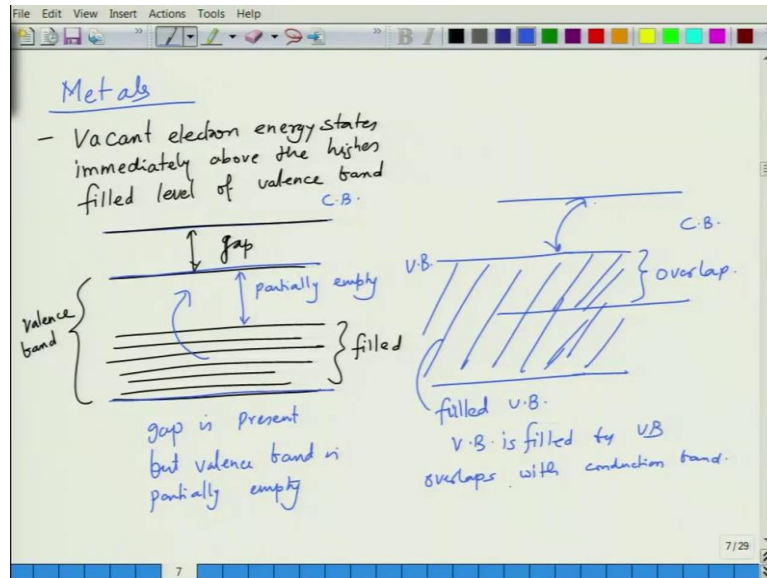 File Edit View Insert Actions Tools Help
B I
Metals
- Vacant electron energy states
immediately above the highes
filled level of valence band
C.B.
gap
partially empty
valence
band
filled
gap is present
but valence band is
partially empty
C.B.
V.B.
overlap.
filled V.B.
V.B. is filled by VB
overlaps with conduction band.
7/29
7